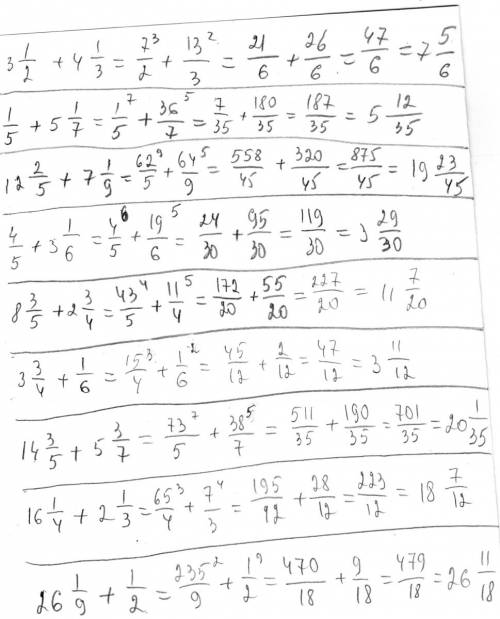 3 1/2 + 4 1/3 = 7³/2 + 13²/3 = 21/6 + 26/6 = 47/6 = 7 5/6
1/5 + 5 1/7 = 1⁷/5 + 36⁵/7 = 7/35 + 180/35 = 187/35 = 5 12/35
12 2/5 + 7 1/9 = 62⁹/5 + 64⁵/9 = 558/45 + 320/45 = 875/45 = 19 23/45
4/5 + 3 1/6 = 4⁶/5 + 19⁵/6 = 24/30 + 95/30 = 119/30 = 3 29/30
8 3/5 + 2 3/4 = 43⁴/5 + 11⁵/4 = 172/20 + 55/20 = 227/20 = 11 7/20
3 3/4 + 1/6 = 15³/4 + 1²/6 = 45/12 + 2/12 = 47/12 = 3 11/12
14 3/5 + 5 3/7 = 73⁷/5 + 38⁵/7 = 511/35 + 190/35 = 701/35 = 20 1/35
16 1/4 + 2 1/3 = 65³/4 + 7⁴/3 = 195/12 + 28/12 = 223/12 = 18 7/12
26 1/9 + 1/2 = 235²/9 + 1⁹/2 = 470/18 + 9/18 = 479/18 = 26 11/18